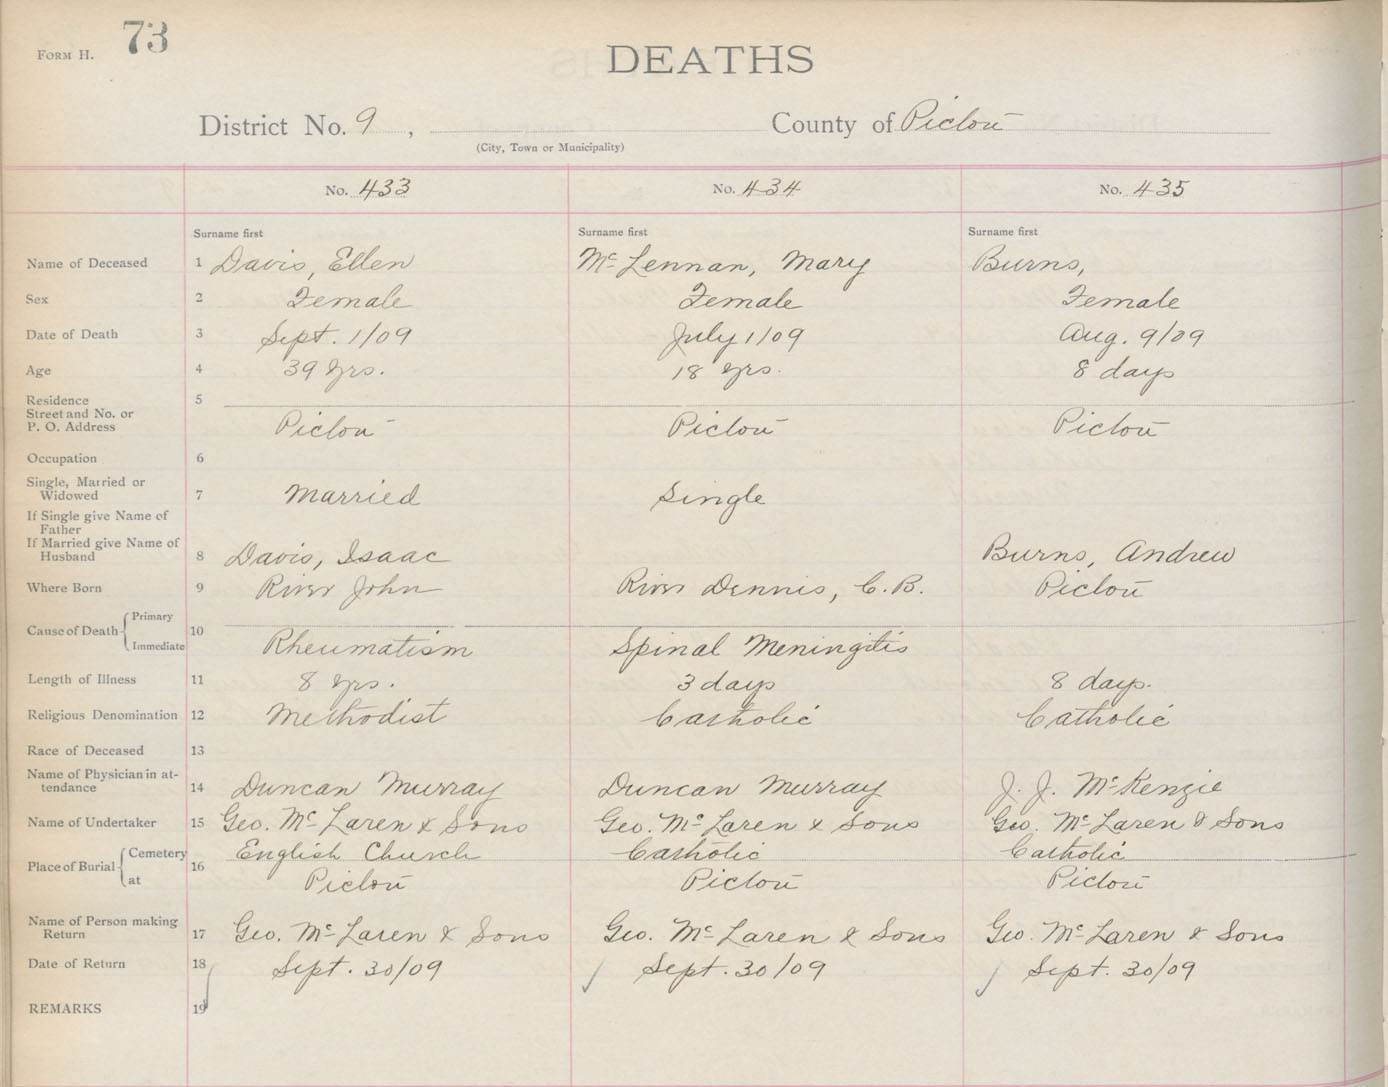 FORM H. 73
DEATHS
District No. 9 , County of Pictou
(City, Town or Municipality)
No. 433 No. 434 No. 435
Surname first Surname first Surname first
Name of Deceased 1 Davis, Ellen McLennan, Mary Burns,
Sex 2 Female Female Female
Date of Death 3 Sept. 1/09 July 1/09 Aug. 9/09
Age 4 39 yrs. 18 yrs. 8 days
Residence 5
Street and No. or
P. O. Address Pictou Pictou Pictou
Occupation 6
Single, Married or
Widowed 7 Married Single
If Single give Name of
Father
If Married give Name of
Husband 8 Davis, Isaac Burns, Andrew
Where Born 9 River John River Dennis, C.B. Pictou
Cause of Death { Primary 10
Immediate Rheumatism Spinal Meningitis
Length of Illness 11 8 yrs. 3 days 8 days.
Religious Denomination 12 Methodist Catholic Catholic
Race of Deceased 13
Name of Physician in at-
tendance 14 Duncan Murray Duncan Murray J. J. McKenzie
Name of Undertaker 15 Geo. McLaren & Sons Geo. McLaren & Sons Geo. McLaren & Sons
Place of Burial { Cemetery 16 English Church Catholic Catholic
at Pictou Pictou Pictou
Name of Person making
Return 17 Geo. McLaren & Sons Geo. McLaren & Sons Geo. McLaren & Sons
Date of Return 18 Sept. 30/09 Sept. 30/09 Sept. 30/09
REMARKS 19